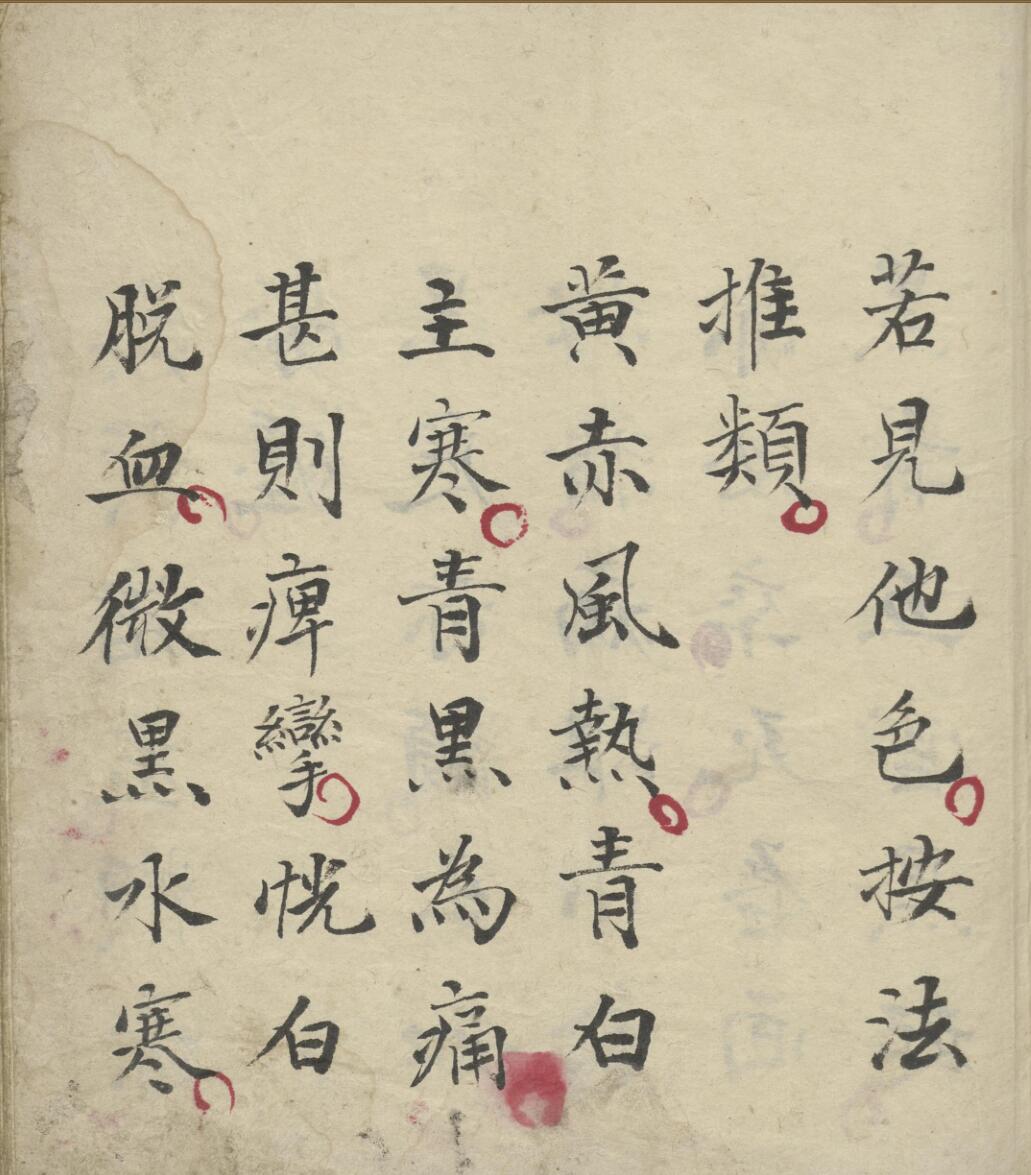 若見他色按法
推類
黃赤風熱青白
主寒青黑為痛
甚則痺攣恍白
脫血微黑水寒